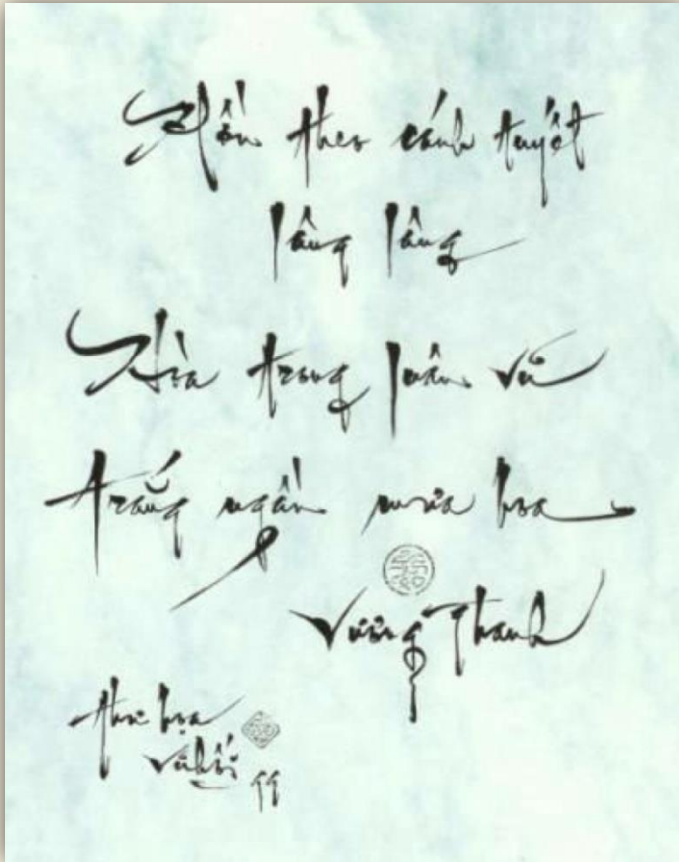 Hồn theo cánh tuyết
lâng lâng
Hòa trong luân vũ
trắng ngần mưa hoa
Vương Thanh
thư họa
vũ hối
99